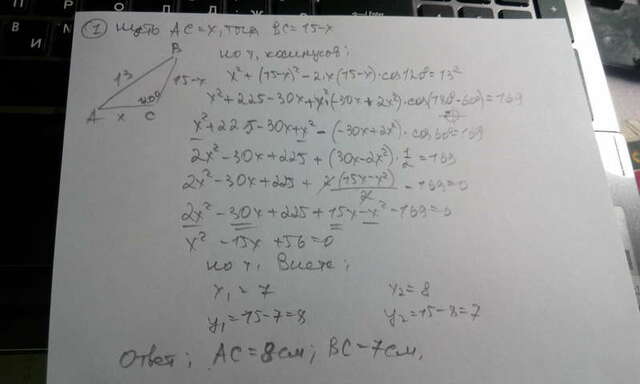 ① Пусть AC=x, тогда BC=15-x
B
13
15-x
120°
A x C
по т. косинусов:
x²+(15-x)²-2x(15-x)·cos120°=13²
x²+225-30x+x²+(-30x+2x²)·cos(180°-60°)=169
x²+225-30x+x²-(-30x+2x²)·cos60°=169
2x²-30x+225+(30x-2x²)·1/2=169
2x²-30x+225+2(15x-x²)/2-169=0
2x²-30x+225+15x-x²-169=0
x²-15x+56=0
по т. Виета:
x₁=7 x₂=8
y₁=15-7=8 y₂=15-8=7
Ответ: AC=8см; BC=7см.